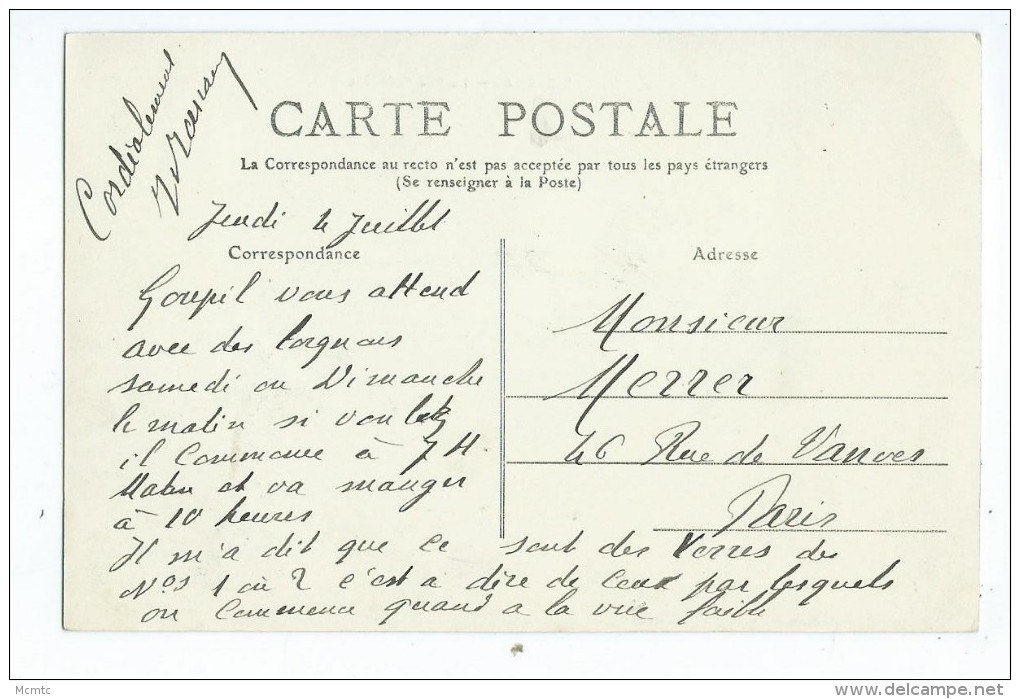 Cordialement
CARTE POSTALE
La Correspondance au recto n'est pas acceptée par tous les pays étrangers
(Se renseigner à la Poste)
Jeudi 4 Juillet
Correspondance
Goupil vous attend
avec des lorgnons
samedi ou Dimanche
le matin si voulez
il commence à 7 H
Matin et va manger
à 10 heures
Il m'a dit que ce sont des verres des
Nos 1 ou 2 c'est a dire de ceux par lesquels
on commence quand a la vue faible
Adresse
Monsieur
Merrer
46 Rue de Vanves
Paris
Mcmtc
delcampe.net